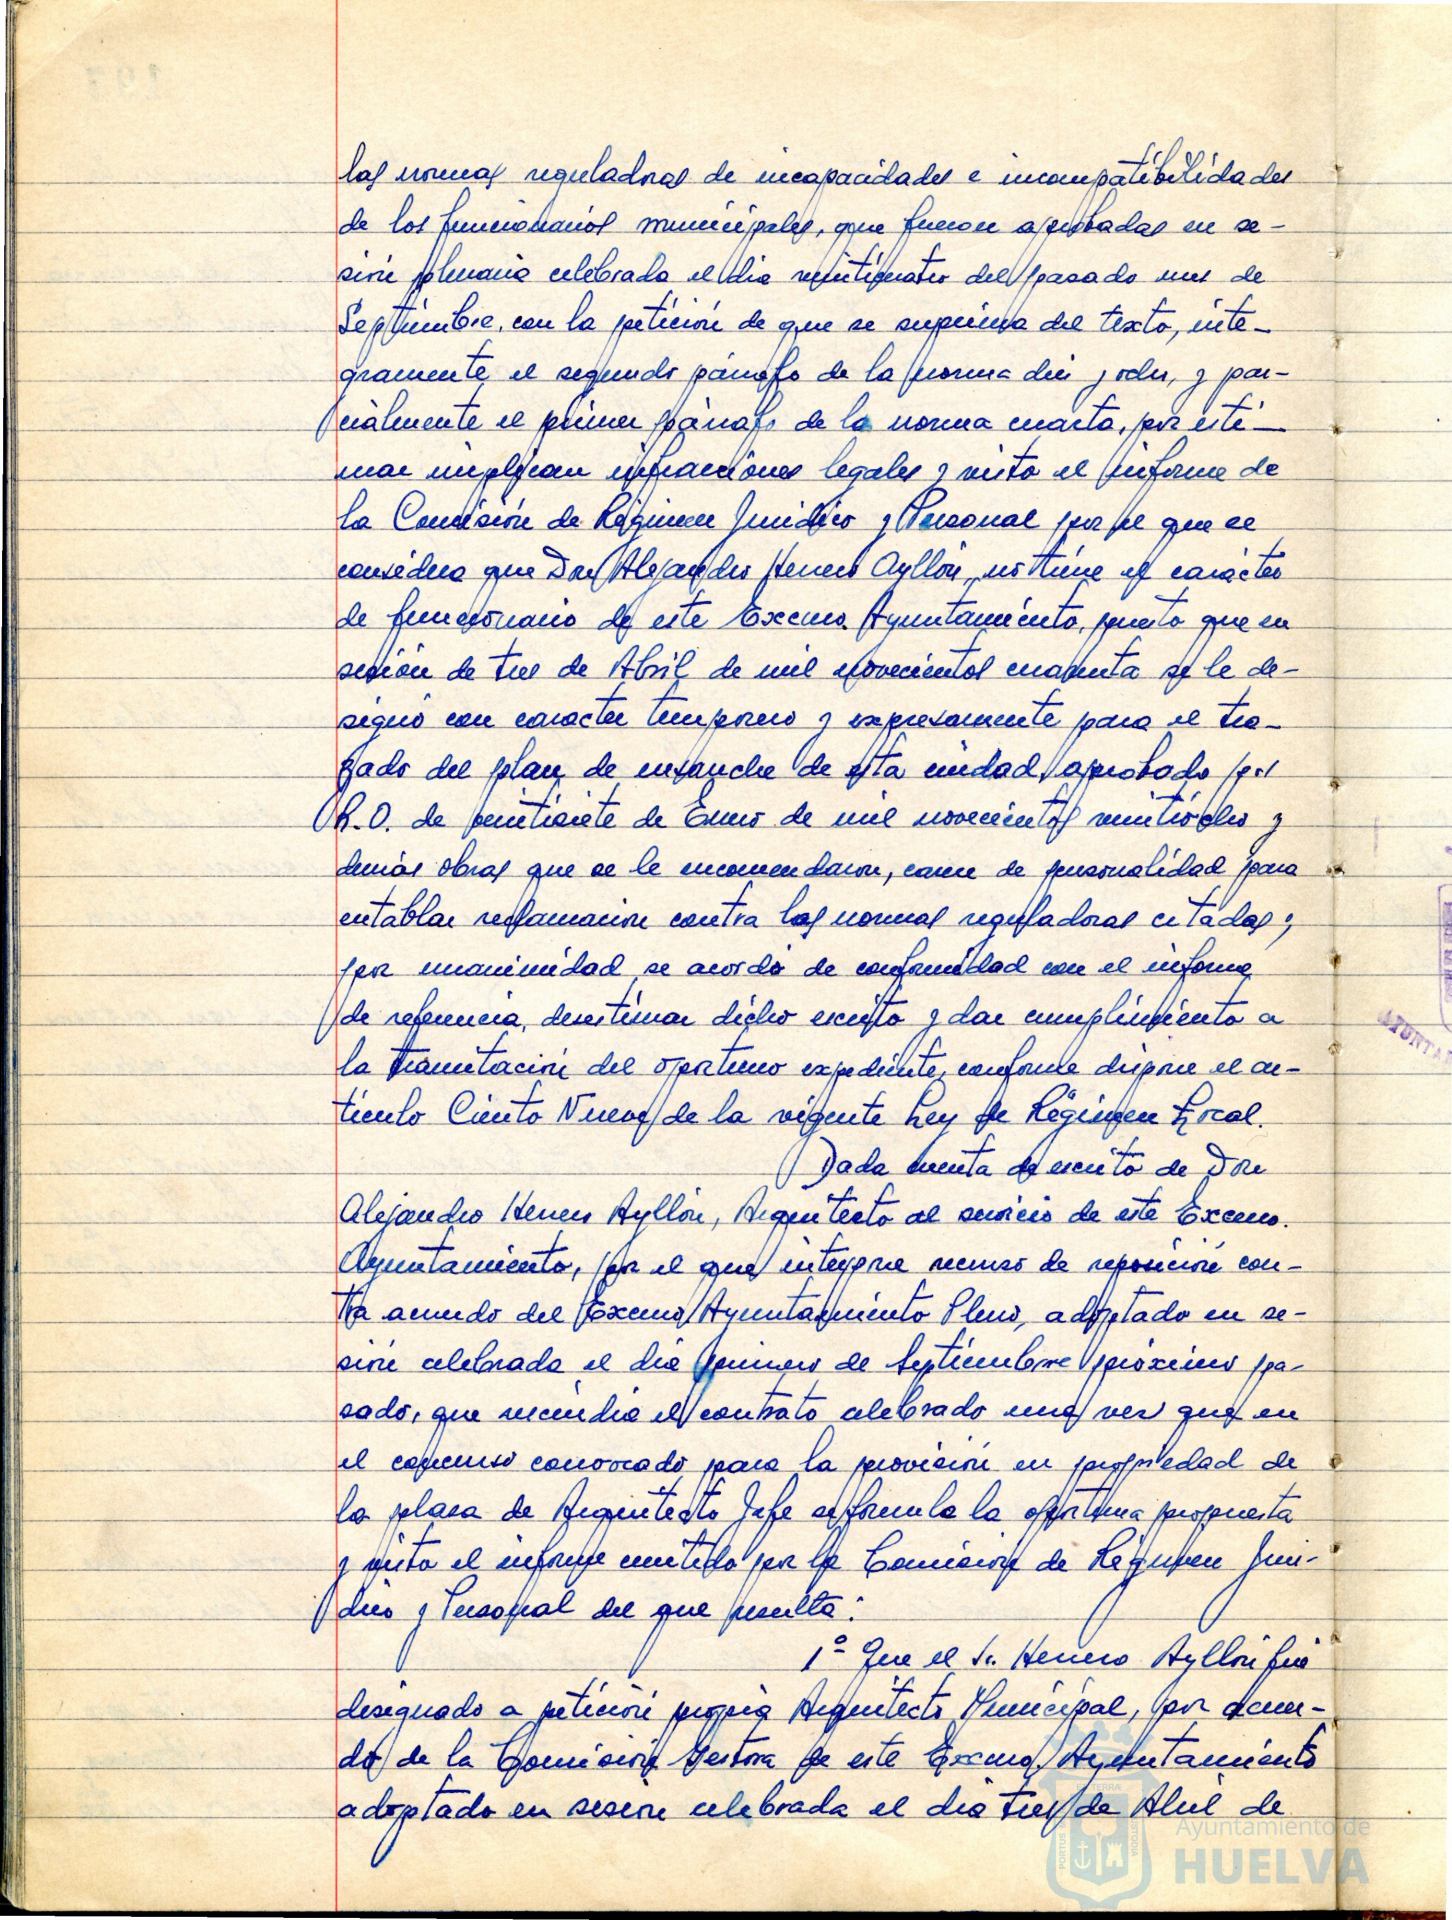 las normas reguladoras de incapacidades e incompatibilidades
de los funcionarios municipales, que fueron aprobadas en se-
sión plenaria celebrada el dia veinticuatro del pasado mes de
Septiembre, con la petición de que se suprima del texto, inte-
gramente el segundo párrafo de la norma diez y ocho, y par-
cialmente el primer párrafo de la norma cuarta, por esti-
mar implican infracciones legales y visto el informe de
la Comisión de Régimen Juridico y Personal por el que se
considera que Don Alejandro Herrero Ayllón, no tiene el carácter
de funcionario de este Excmo. Ayuntamiento, puesto que en
sesión de tres de Abril de mil novecientos cuarenta se le de-
signó con caracter temporero y expresamente para el tra-
zado del plan de ensanche de esta ciudad, aprobado por
R.O. de veintisiete de Enero de mil novecientos veintiocho y
demás obras que se le encomendaron, carece de personalidad para
entablar reclamación contra las normas reguladoras citadas;
por unanimidad se acordó de conformidad con el informe
de referencia, desestimar dicho escrito y dar cumplimiento a
la tramitación del oportuno expediente, conforme dispone el ar-
tículo Ciento Nueve de la vigente Ley de Régimen Local.
Dada cuenta de escrito de Don
Alejandro Herrero Ayllón, Arquitecto al servicio de este Excmo.
Ayuntamiento, por el que interpone recurso de reposición con-
tra acuerdo del Excmo. Ayuntamiento Pleno, adoptado en se-
sión celebrada el dia primero de Septiembre próximo pa-
sado, que rescindía el contrato celebrado una vez que en
el concurso convocado para la provisión en propiedad de
la plaza de Arquitecto Jefe se formula la oportuna propuesta
y visto el informe emitido por la Comisión de Régimen Juri-
dico y Personal del que resulta:
1º Que el Sr. Herrero Ayllón fué
designado a petición propia Arquitecto Municipal, por acuer-
do de la Comisión Gestora de este Excmo. Ayuntamiento
adoptado en sesión celebrada el dia tres de Abril de
Ayuntamiento de
HUELVA